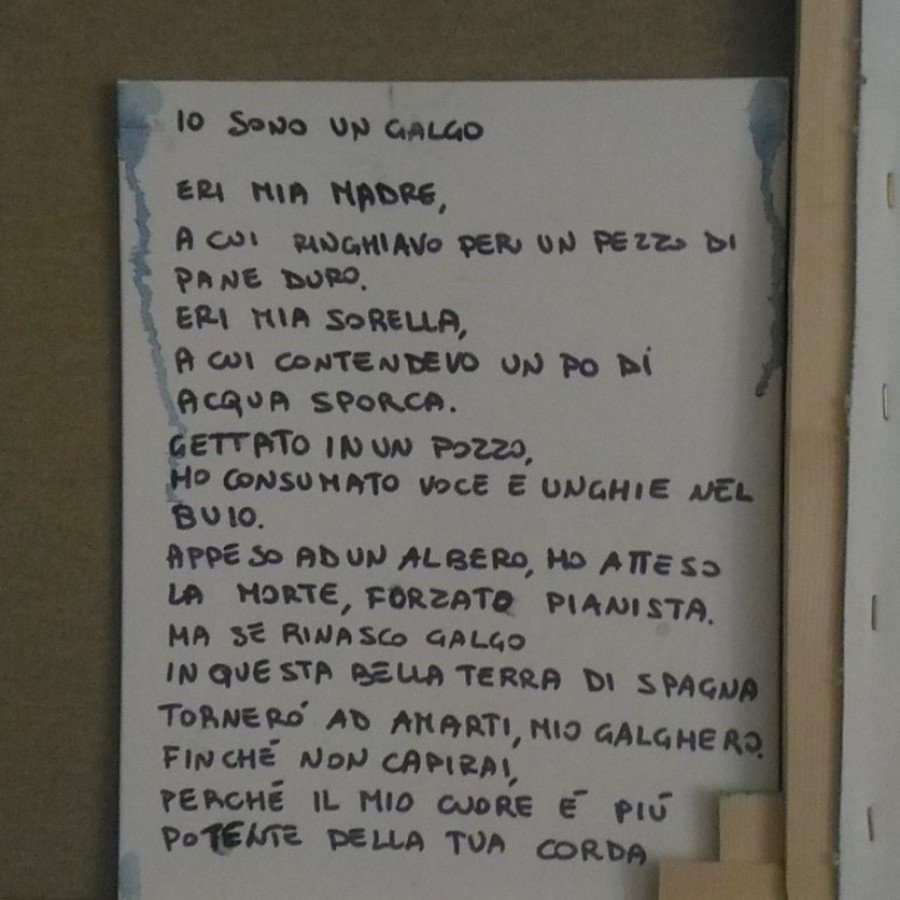 IO SONO UN GALGO
ERI MIA MADRE,
A CUI RINGHIAVO PER UN PEZZO DI
PANE DURO.
ERI MIA SORELLA,
A CUI CONTENDEVO UN PO DI
ACQUA SPORCA.
GETTATO IN UN POZZO,
HO CONSUMATO VOCE E UNGHIE NEL
BUIO.
APPESO AD UN ALBERO, HO ATTESO
LA MORTE, FORZATO PIANISTA.
MA SE RINASCO GALGO
IN QUESTA BELLA TERRA DI SPAGNA
TORNERÓ AD AMARTI, MIO GALGHERO.
FINCHÉ NON CAPIRAI,
PERCHÉ IL MIO CUORE É PIÚ
POTENTE DELLA TUA CORDA